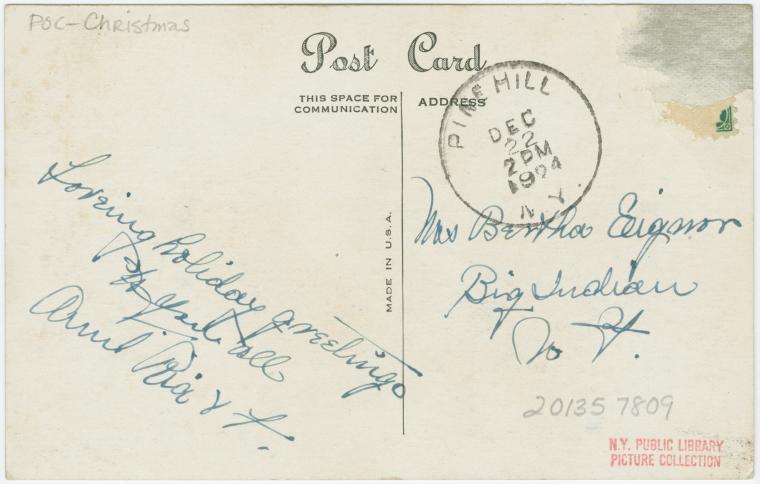 POC-Christmas
Post Card
THIS SPACE FOR
COMMUNICATION
ADDRESS
PINE HILL
DEC
22
2 PM
1924
N.Y.
MADE IN U.S.A.
Loveing holiday greetings
to you all
Mrs Bertha Eignor
Big Indian
N Y.
201357809
N.Y. PUBLIC LIBRARY
PICTURE COLLECTION